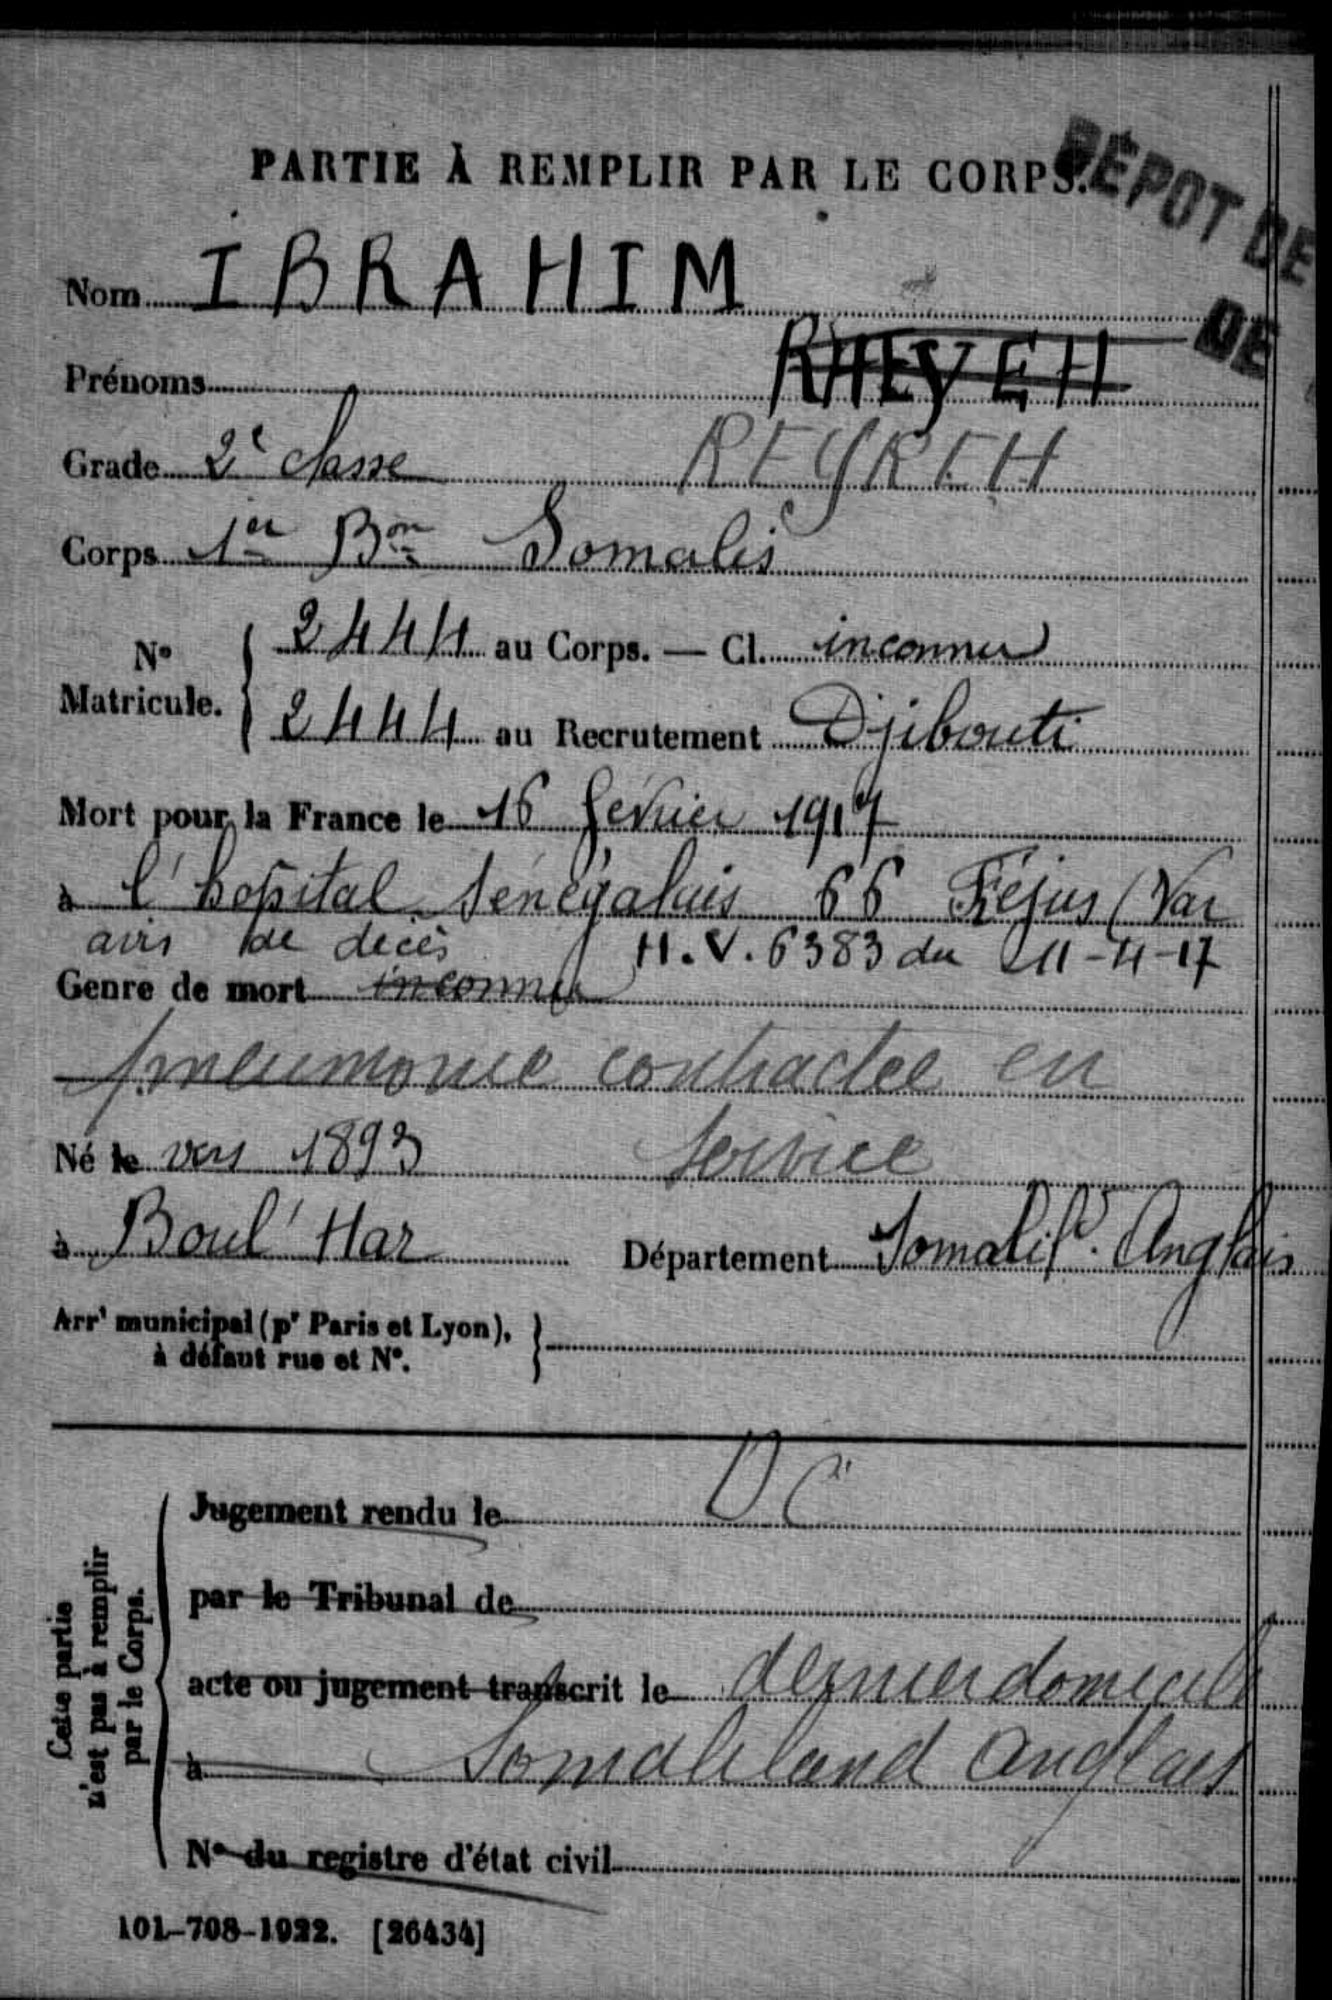 PARTIE À REMPLIR PAR LE CORPS.
DÉPOT DE
DE
Nom IBRAHIM
Prénoms RHEYEH
Grade 2e classe REYREH
Corps 1er Bon Somalis
No Matricule. { 2444 au Corps. — Cl. inconnu
2444 au Recrutement Djibouti
Mort pour la France le 16 fevrier 1917
à l'hopital Sénégalais 66 Fréjus (Var
avis de décès H.V. 6383 du 211-4-17
Genre de mort inconnu
pneumonie contractee en
service
Né le vers 1893
à Boul'Har Département Somalid. Anglais
Arrt municipal (pr Paris et Lyon), à défaut rue et No. }
Cette partie n'est pas à remplir par le Corps.
DC
Jugement rendu le
par le Tribunal de
acte ou jugement transcrit le dernier domicile
à Somaliland anglais
No du registre d'état civil
101-708-1922. [26434]